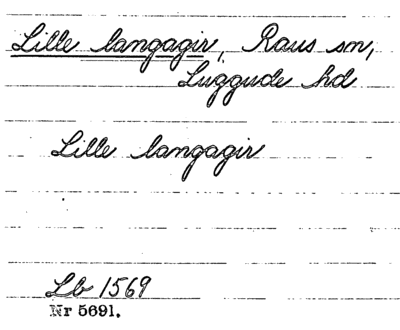 Lille langagir, Raus sn,
Luggude hd
Lille langagir
Lb 1569
Nr 5691.